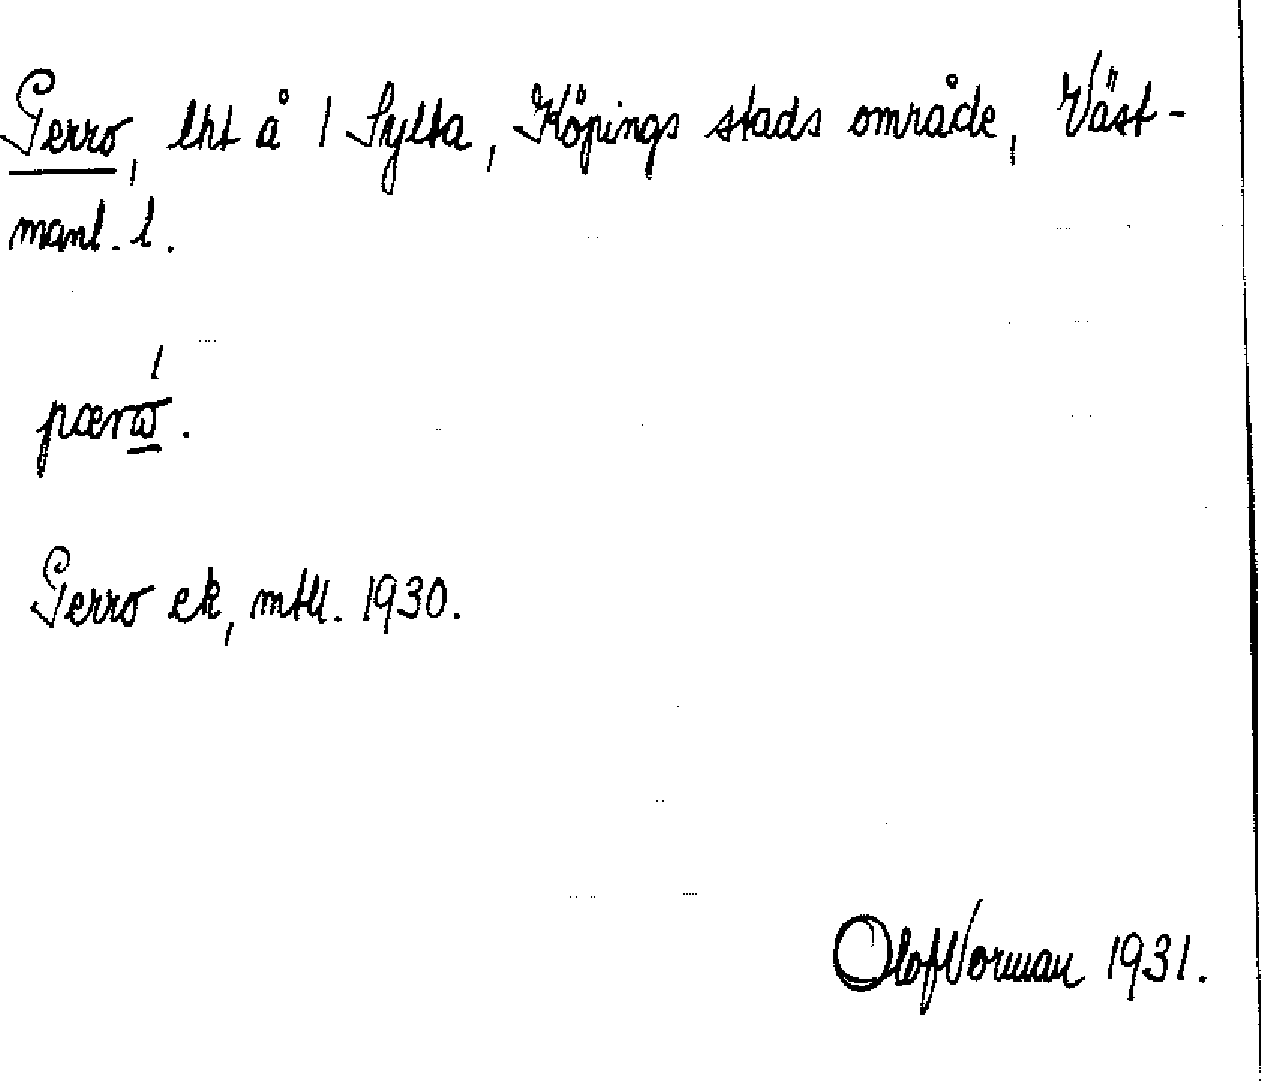 Perro, lht å 1 Sylta, Köpings stads område, Väst-
manl. l.
pærω̅.
Perro ek, mtll. 1930.
Olof Norman 1931.